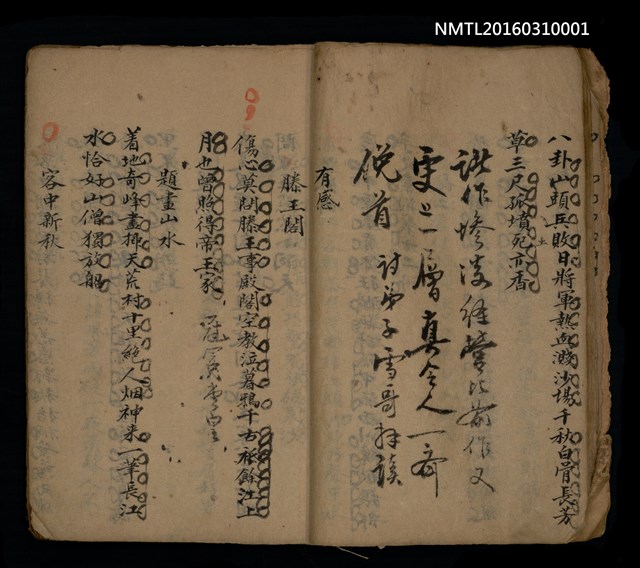 NMTL20160310001
八卦山頭兵敗日將軍熱血濺沙場千秋白骨長芳
草三尺孤墳死亦香
諸作慘淡經營此作又
更上一層真令人一齊
俛首 詩弟子雪哥拜讀
有感
滕王閣
傷心莫問滕王事殿閣空教泣暮鴉千古祗餘江上
月也曾照得帝王家
題畫山水
着地奇峰畫掃天荒村十里絶人烟神来一筆長江
水恰好山僧獨放船
客中新秋